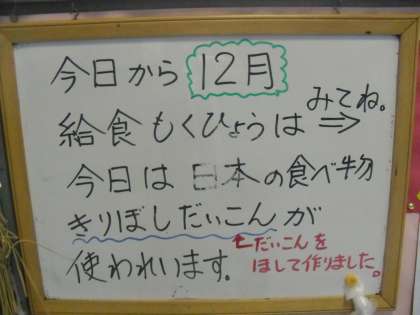 今日から 12月
給食もくひょうは ⇒ みてね。
今日は日本の食べ物
きりぼしだいこんが
使われいます。
←だいこんを
ほして作りました。